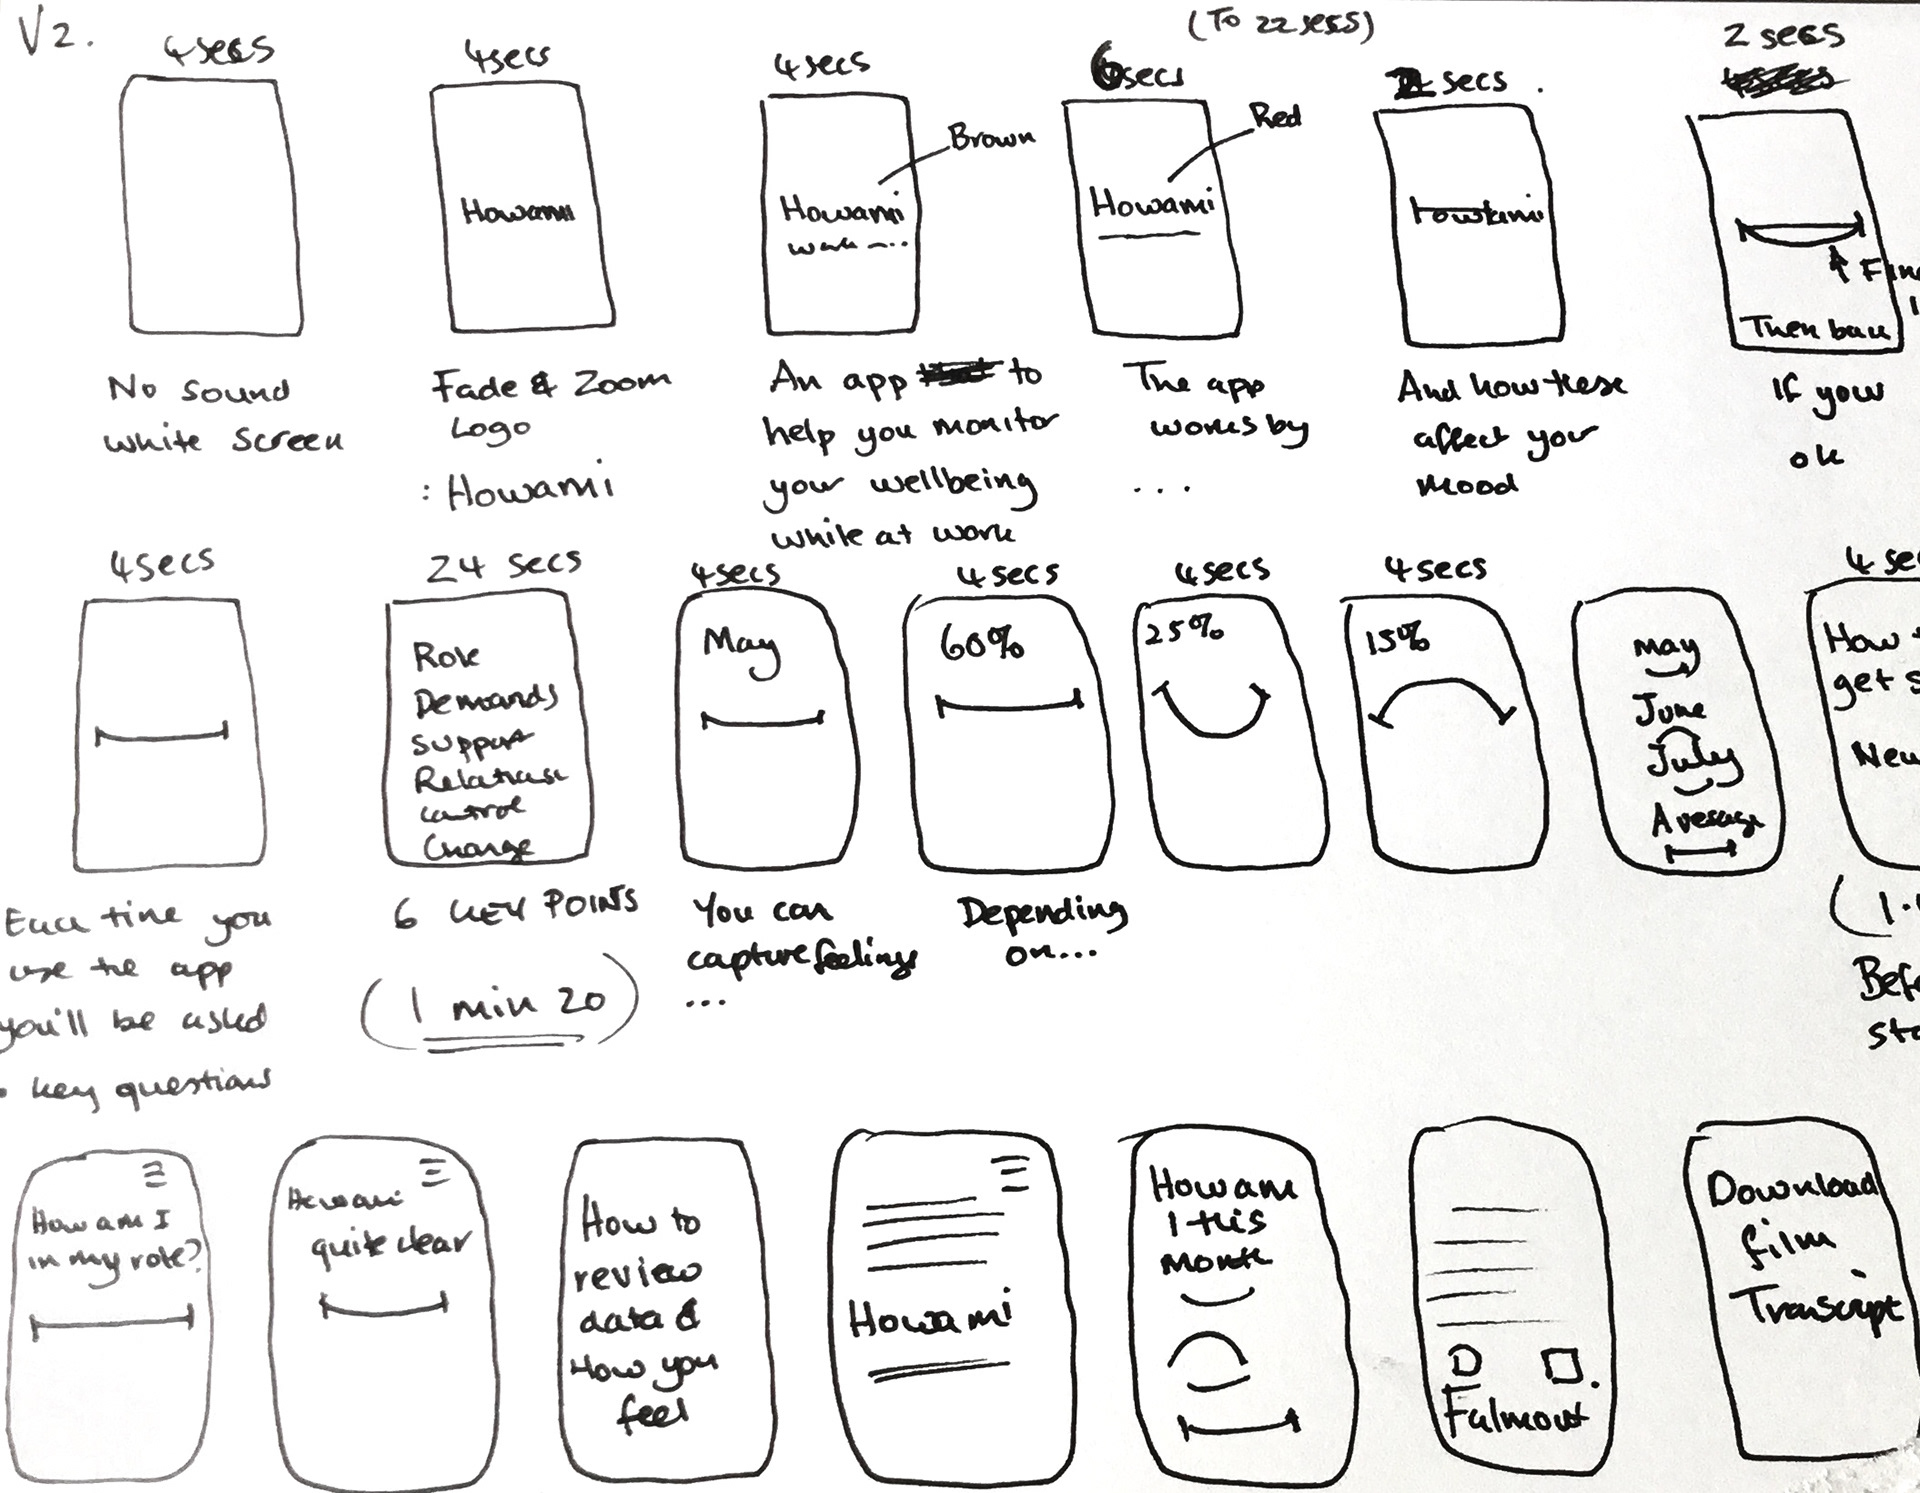 V2.
4secs
No sound
white screen
4secs
Howami
Fade & Zoom
Logo
: Howami
4secs
Brown
Howami
An app to
help you monitor
your wellbeing
while at work
(To 22 secs)
6secs
Red
Howami
The app
works by
...
2 secs
And how these
affect your
mood
2 secs
Then back
If your
ok
4secs
Each time you
use the app
you'll be asked
key questions
24 secs
Role
Demands
Support
Control
Change
6 KEY POINTS
(1 min 20)
4secs
May
You can
capture feelings
...
4secs
60%
Depending
on...
4secs
25%
4secs
15%
May
June
July
Average
4 sec
How
get s
New
(1.
Befo
sta
How am I
in my role?
Howami
quite clear
How to
review
data &
How you
feel
Howami
How am
I this
month
Falmout
Download
film
Transcript